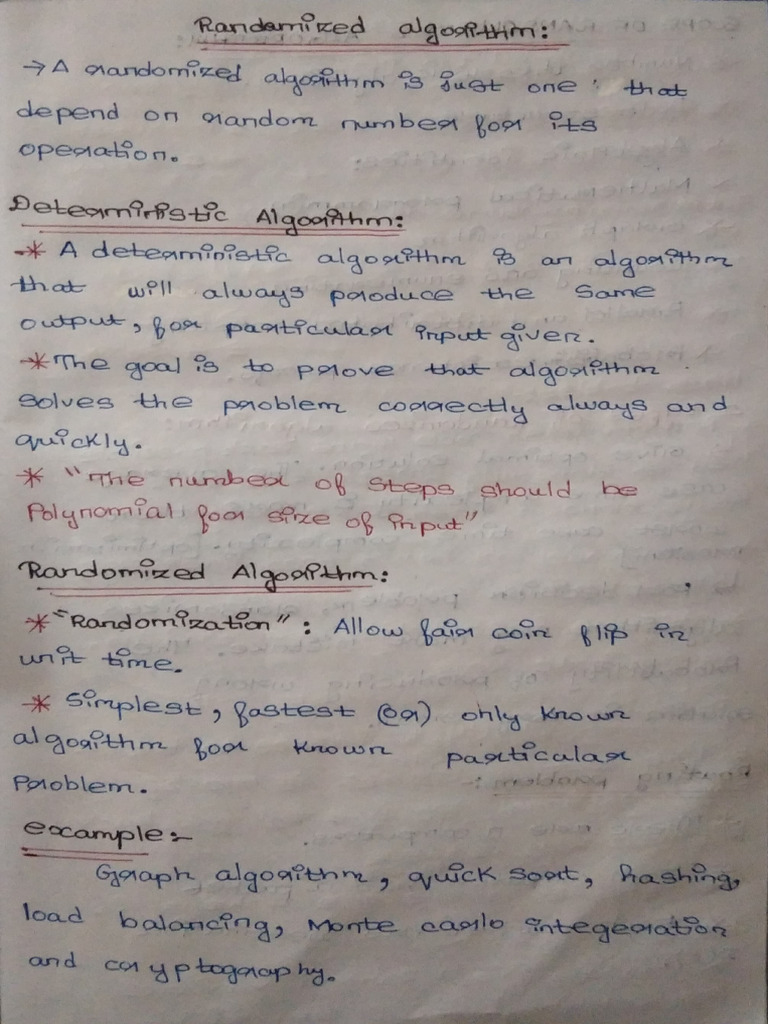 Randomized algorithm:
→ A randomized algorithm is just one that
depend on random number for its
operation.
Deterministic Algorithm:
* A deterministic algorithm is an algorithm
that will always produce the same
output, for particular input given.
* The goal is to prove that algorithm
solves the problem correctly always and
quickly.
* "The number of steps should be
Polynomial for size of input"
Randomized Algorithm:
* "Randomization": Allow fair coin flip in
unit time.
* Simplest, fastest (or) only known
algorithm for known particular
Problem.
example:-
Graph algorithm, quick sort, hashing,
load balancing, Monte carlo integeration
and cryptography.